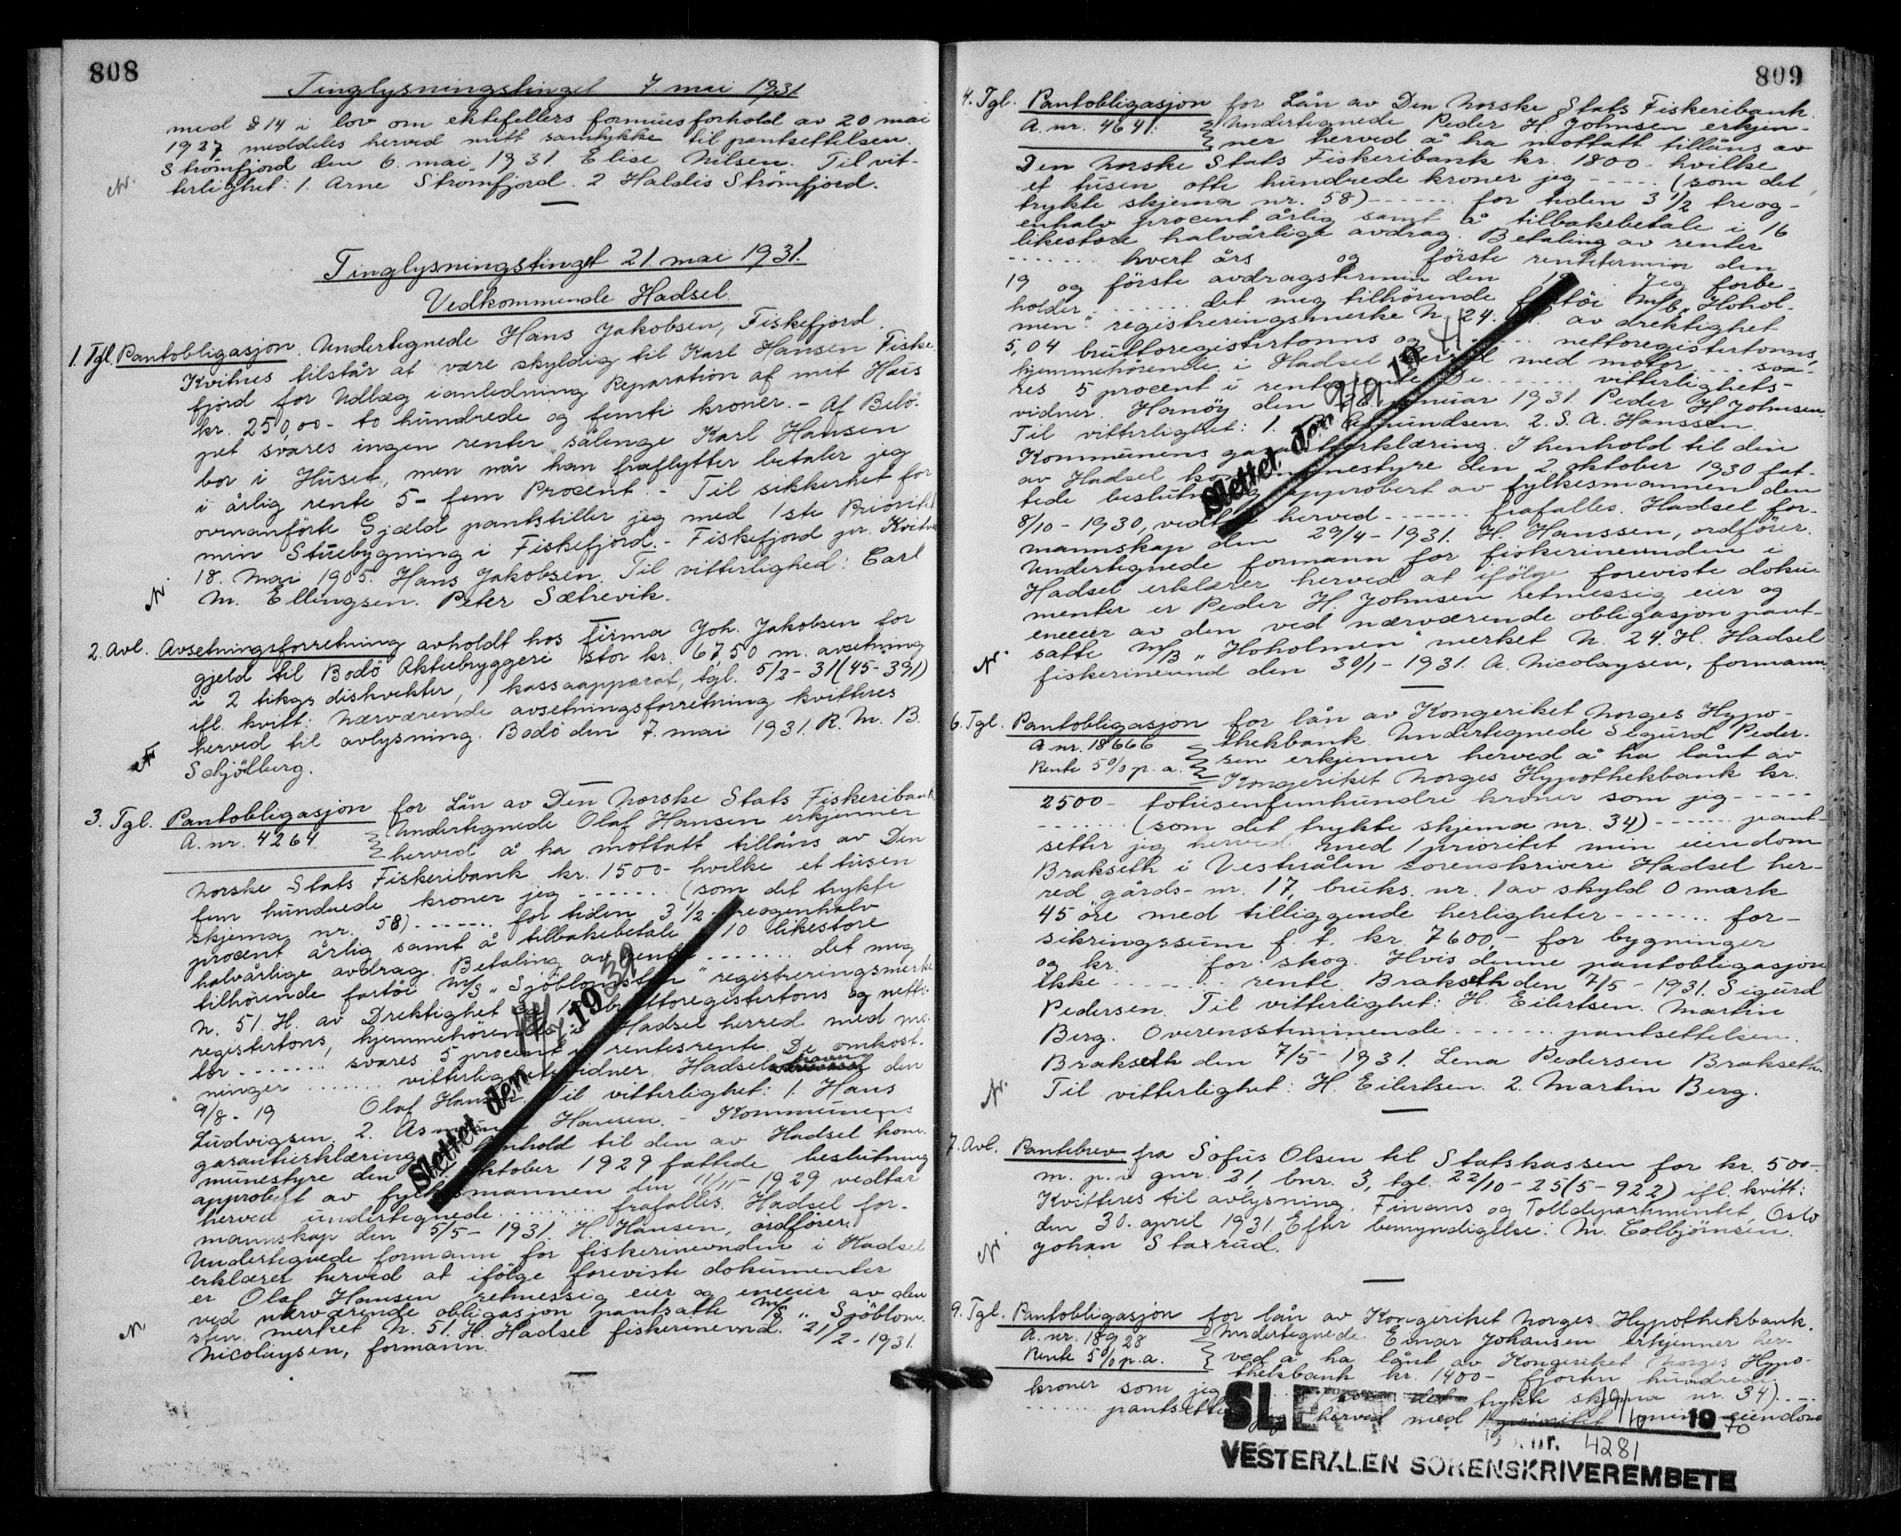 808
Tinglysningstinget 7 mai 1931
med § 14 i lov om ektefellers formuesforhold av 20 mai
1927 meddeles herved mitt samtykke til pantsettelsen.
Strömfjord den 6. mai 1931. Elise Nilsen. Til vit-
terlighet: 1. Arne Strömfjord. 2 Haldis Strömfjord.
Tinglysningstinget 21. mai 1931.
Vedkommende Hadsel.
1. Tgl. Pantobligasjon. Undertegnede Hans Jakobsen, Fiskefjord
Kvitnes tilstår at være skyldig til Karl Hansen Fiske
fjord for Udlæg ianledning Reparation af mit Hus
kr. 250,00 - to hundrede og femti kroner. - Af Belö-
pet svares ingen renter sålenge Karl Hansen
bor i Huset, men når han fraflytter betaler jeg
i årlig rente 5 - fem Procent. - Til sikkerhet for
ovenanförte Gjæld pantstiller jeg med 1ste Prioritet
min Stuebygning i Fiskefjord. - Fiskefjord pr. Kvitnes
18. Mai 1905. Hans Jakobsen. Til vitterlighed: Carl
M. Ellingsen. Peter Sætrevik.
2. Avl. Avsetningsforretning avholdt hos firma Joh. Jakobsen for
gjeld til Bodö Aktiebryggeri stor kr. 67,50 m. avsetning
i 2 tikgs diskvekter, 1 kassaapparat, tgl. 5/2-31 (45-391)
ifl. kvitt: Nærværende avsetningsforretning kvitteres
herved til avlysning. Bodö den 7. mai 1931. R. M. B.
Schjölberg.
3. Tgl. Pantobligasjon for Lån av Den Norske Stats Fiskeribank
A. nr. 4264. Undertegnede Olaf Hansen erkjenner
herved å ha mottatt tillåns av Den
Norske Stats Fiskeribank kr. 1500- hvilke et tusen
fem hundrede kroner jeg ------ (som det trykte
skjema nr. 58) ------ for tiden 3 1/2 - treogenhalv
procent årlig samt å tilbakebetale 10 likestore
halvårlige avdrag. Betaling av rente ------ det mig
tilhörende fartöi M/S "Sjöblomsten" registreringsmerke
N. 51. H. av Drektighet bruttoregistertons og netto-
registertons, hjemmehörende i Hadsel herred med mo-
tor ------ svares 5 procent i rentesrente. De omkost-
ninger ------ vitterlighetsvidner. Hadsel den
9/8 - 19 Olaf Hansen. Til vitterlighet: 1. Hans
Ludvigsen. 2. Asmund Hansen. - Kommunens
garantierklæring. I henhold til den av Hadsel kom-
munestyre den oktober 1929 fattede beslutning
approbert av fylkesmannen den 11/11 - 1929 vedtar
herved undertegnede ------ frafalles. Hadsel for-
mannskap den 5/5 - 1931. H. Hansen, ordförer.
Undertegnede formann for fiskerinevnden i Hadsel
erklærer herved at ifölge foreviste dokumenter
er Olaf Hansen retmessig eier og eneeier av den
ved nærværende obligasjon pantsatte M/S "Sjöblom-
sten" merket N. 51. H. Hadsel fiskerinevnd. 21/2 - 1931.
Nicolaysen, formann.
Slettet den 19 39
809
4. Tgl. Pantobligasjon for Lån av Den Norske Stats Fiskeribank.
A. nr. 4641. Undertegnede Peder H. Johnsen erkjen-
ner herved å ha mottatt tillåns av
Den Norske Stats Fiskeribank kr. 1800- hvilke
et tusen otte hundrede kroner jeg ----- (som det
trykte skjema nr. 58) ------ for tiden 3 1/2 treog-
enhalv procent årlig samt å tilbakebetale i 16
likestore halvårlige avdrag. Betaling av renter
------ hvert års og förste rentetermin den
19 og förste avdragstermin den 19 . Jeg forbe-
holder ------ det mig tilhörende fartöi M/b "Hohol-
men" registreringsmerke N. 24. H. av drektighet
5,04 bruttoregistertonns og nettoregistertonns,
hjemmehörende i Hadsel herred med motor ---- sva-
res 5 procent i rentesrente. De ------ vitterlighets-
vidner. Hanöy den januar 1931. Peder H. Johnsen.
Til vitterlighet: 1. Asmundsen. 2. S. A. Hanssen.
Kommunens garantierklæring. I henhold til den
av Hadsel kommunestyre den 2 oktober 1930 fat-
tede beslutning approbert av fylkesmannen den
8/10 - 1930, vedtar herved ------ frafalles. Hadsel for-
mannskap den 29/4 - 1931. H. Hanssen, ordförer.
Undertegnede formann for fiskerinevnden i
Hadsel erklærer herved at ifölge foreviste doku-
menter er Peder H. Johnsen retmessig eier og
eneeier av den ved nærværende obligasjon pant-
satte M/B "Hoholmen" merket N. 24. H. Hadsel
fiskerinevnd den 30/1 - 1931. A. Nicolaysen, formann.
Slettet den 9/9 19 41
6. Tgl. Pantobligasjon for lån av Kongeriket Norges Hypo-
A. nr. 18666 thekbank. Undertegnede Sigurd Peder-
Rente 5 % p. a. sen erkjenner herved å ha lånt av
Kongeriket Norges Hypothekbank kr.
2500 - totusenfemhundre kroner som jeg -----
------ (som det trykte skjema nr. 34) ------ pant-
setter jeg herved med 1 prioritet min eiendom
Brakseth i Vesterålen sorenskriveri Hadsel her-
red gårds-nr. 17, bruks. nr. 1 av skyld 0 mark
45 öre med tilliggende herligheter ------ for-
sikringssum f. t. kr. 7600,- for bygninger
og kr. for skog. Hvis denne pantobligasjon
ikke ------ rente. Brakseth den 7/5 - 1931. Sigurd
Pedersen. Til vitterlighet: H. Eilertsen. Martin
Berg. Overensstemmende ------ pantsettelsen.
Brakseth den 7/5 - 1931. Lena Pedersen Brakseth.
Til vitterlighet: H. Eilertsen. 2. Martin Berg.
7. Avl. Pantebrev fra Sofus Olsen til Statskassen for kr. 500-
m. p. i gnr. 21, bnr. 3, tgl. 22/10 - 25 (5-922) ifl. kvitt:
Kvitteres til avlysning. Finans og Tolldepartmentet, Oslo
den 30. april 1931. Efter bemyndigelse: M. Colbjörnsen.
Johan Staxrud.
9. Tgl. Pantobligasjon for lån av Kongeriket Norges Hypothekbank.
A. nr. 18928 Undertegnede Einar Johansen erkjenner her-
Rente 5 % p. a. ved å ha lånt av Kongeriket Norges Hypo-
thekbank kr. 1400- fjorten hundrede
kroner som jeg det trykte skjema nr. 34) ----
------ pantsetter herved med 1 prioritet min eiendom
SLETT 19 70
nr. 4281
VESTERÅLEN SORENSKRIVEREMBETE